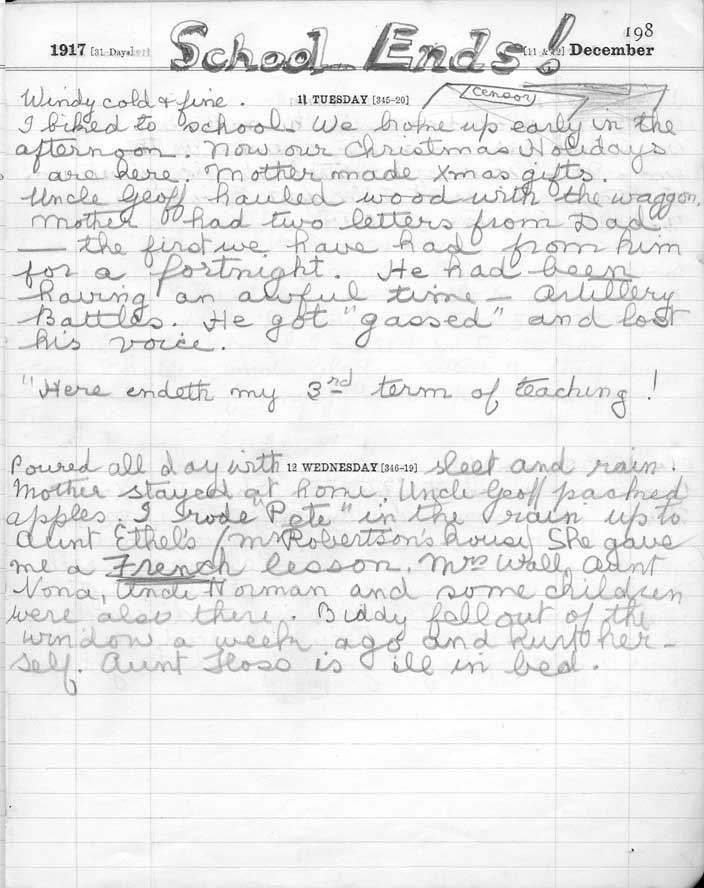 198
1917 [31 Days] School Ends! [11 & 12] December
Windy cold & fine. 11 TUESDAY [345-20] censor
I biked to school. We broke up early in the
afternoon. Now our Christmas Holidays
are here. Mother made Xmas gifts.
Uncle Geoff hauled wood with the waggon.
Mother had two letters from Dad
— the first we have had from him
for a fortnight. He had been
having an awful time — Artillery
Battles. He got "gassed" and lost
his voice.
"Here endeth my 3rd term of teaching!
Poured all day with 12 WEDNESDAY [346-19] sleet and rain.
Mother stayed at home. Uncle Geoff packed
apples. I rode "Pete" in the rain up to
Aunt Ethel's (Mrs Robertson's house) She gave
me a French lesson. Mrs Wall, Aunt
Nona, Uncle Norman and some children
were also there. Biddy fell out of the
window a week ago and hurt her-
self. Aunt Floss is ill in bed.